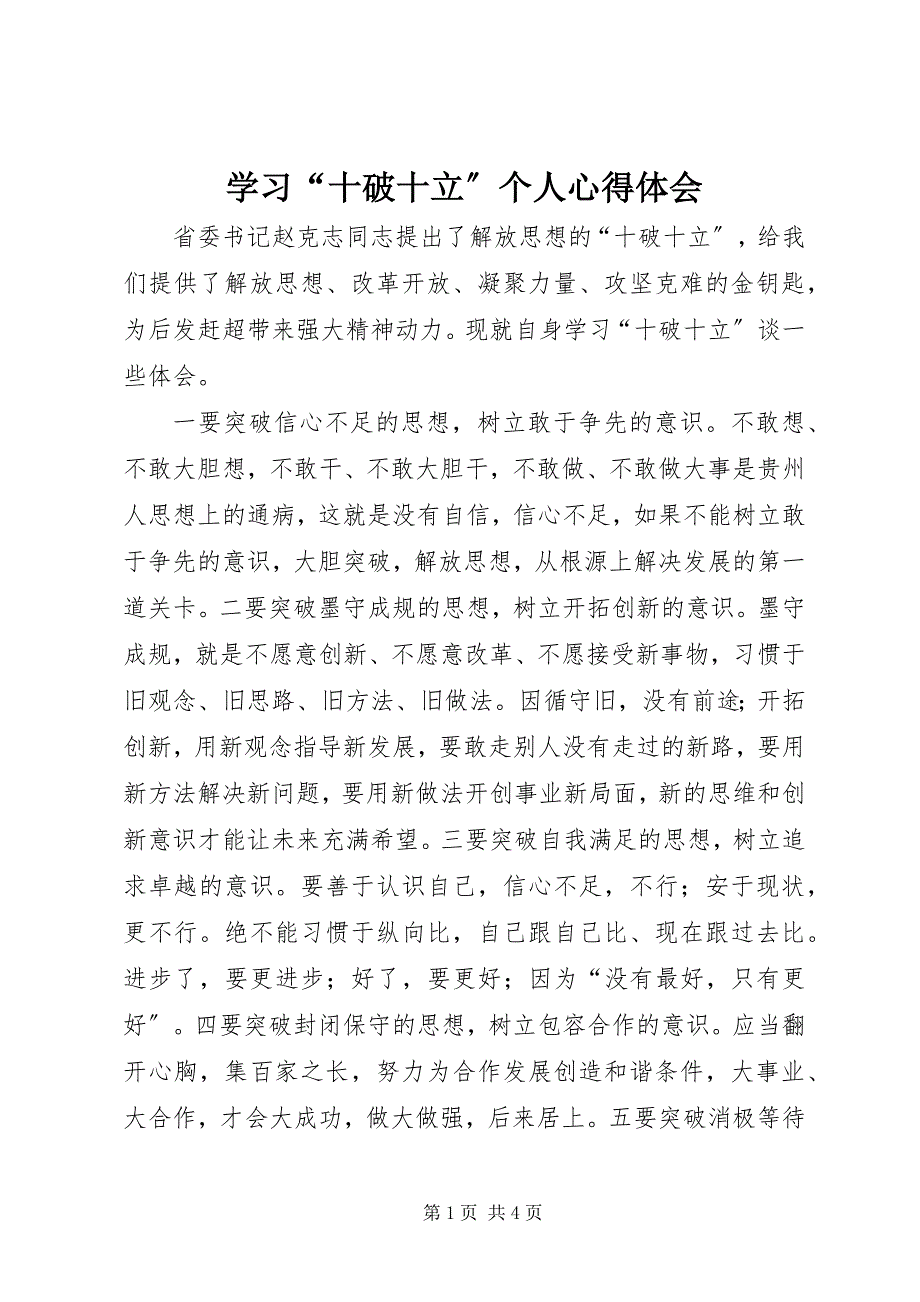 学习“十破十立〞个人心得体会
省委书记赵克志同志提出了解放思想的“十破十立〞，给我
们提供了解放思想、改革开放、凝聚力量、攻坚克难的金钥匙，
为后发赶超带来强大精神动力。现就自身学习“十破十立〞谈一
些体会。
一要突破信心不足的思想，树立敢于争先的意识。不敢想、
不敢大胆想，不敢干、不敢大胆干，不敢做、不敢做大事是贵州
人思想上的通病，这就是没有自信，信心不足，如果不能树立敢
于争先的意识，大胆突破，解放思想，从根源上解决发展的第一
道关卡。二要突破墨守成规的思想，树立开拓创新的意识。墨守
成规，就是不愿意创新、不愿意改革、不愿接受新事物，习惯于
旧观念、旧思路、旧方法、旧做法。因循守旧，没有前途；开拓
创新，用新观念指导新发展，要敢走别人没有走过的新路，要用
新方法解决新问题，要用新做法开创事业新局面，新的思维和创
新意识才能让未来充满希望。三要突破自我满足的思想，树立追
求卓越的意识。要善于认识自己，信心不足，不行；安于现状，
更不行。绝不能习惯于纵向比，自己跟自己比、现在跟过去比。
进步了，要更进步；好了，要更好；因为“没有最好，只有更
好〞。四要突破封闭保守的思想，树立包容合作的意识。应当翻
开心胸，集百家之长，努力为合作发展创造和谐条件，大事业、
大合作，才会大成功，做大做强，后来居上。五要突破消极等待
第 1 页 共 4 页